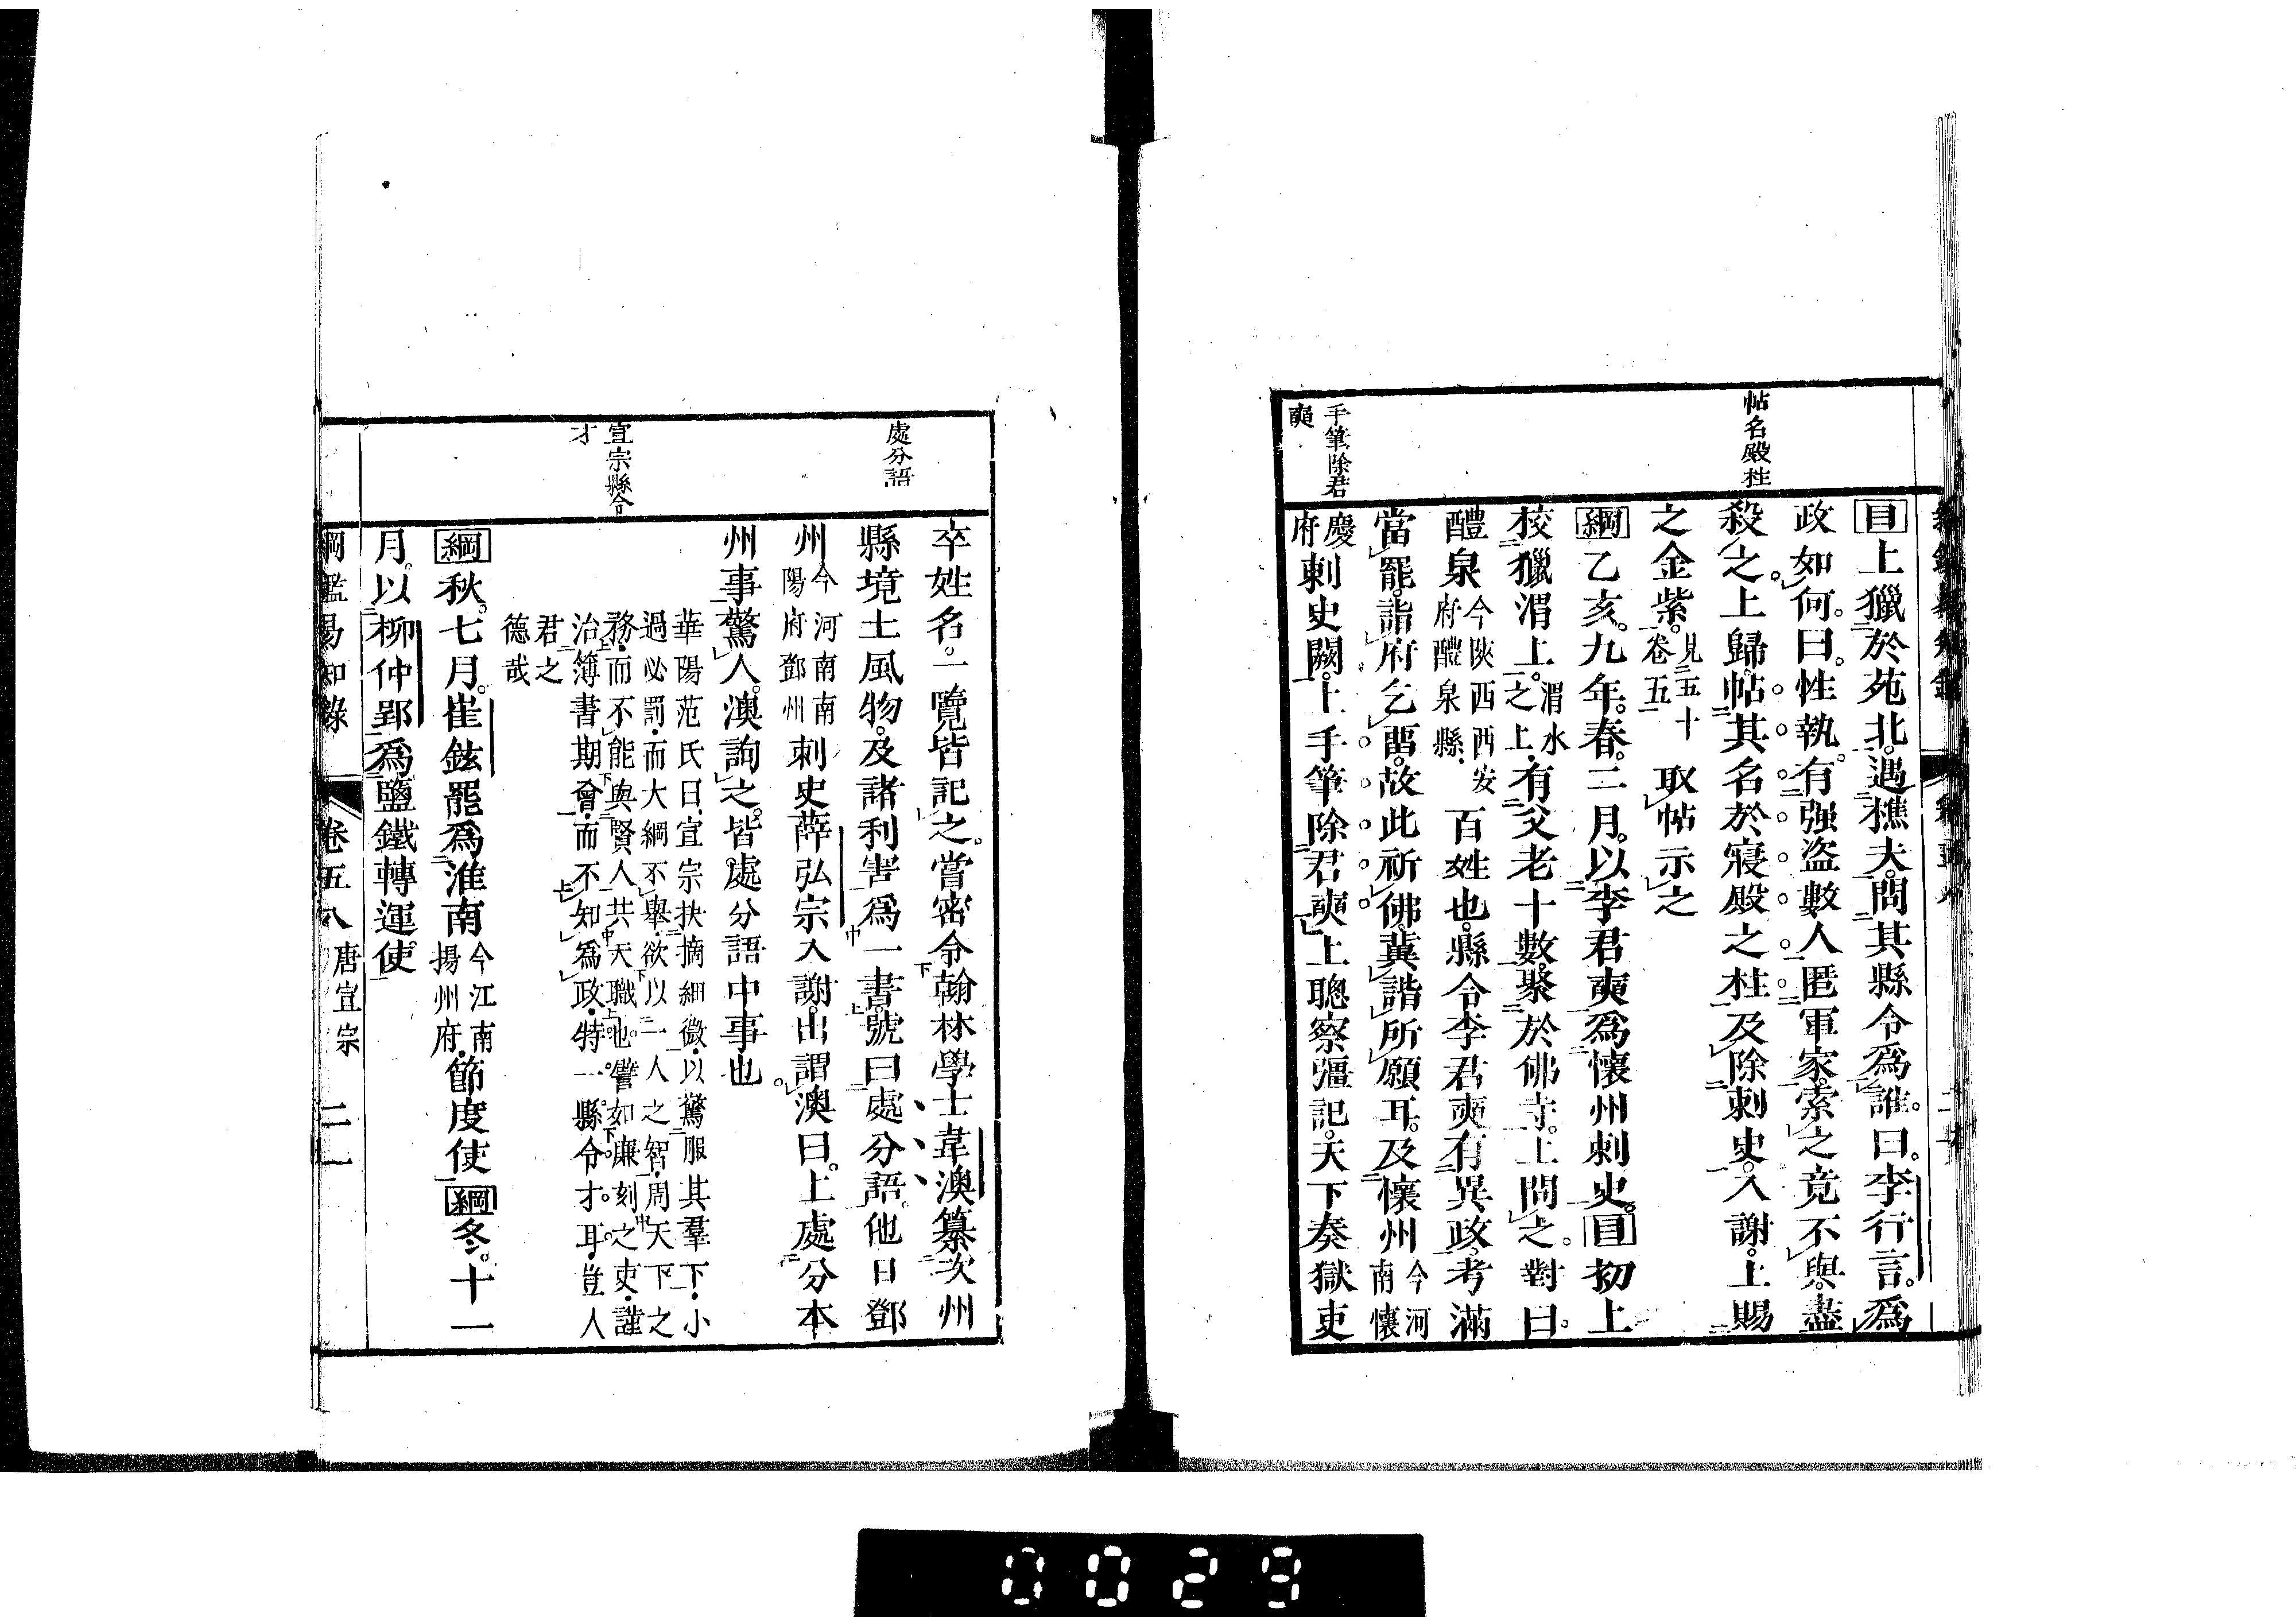 帖名殿柱
手筆除君
奭
目上獵於苑北。遇樵夫。問其縣令爲誰。曰。李行言。爲
政如何。曰。性執。有强盜數人匿軍家。索之竟不與。盡
殺之。上歸帖其名於寢殿之柱。及除刺史。入謝。上賜
之金紫。見五十卷五取帖示之
綱乙亥。九年。春。二月。以李君奭爲懷州刺史。目初上
校獵渭上。渭水之上。有父老十數。聚於佛寺。上問之。對曰。
醴泉今陝西西安府醴泉縣。百姓也。縣令李君奭有異政。考滿
當罷。詣府乞留。故此祈佛。冀諧所願耳。及懷州今河南懷
慶府刺史闕。上手筆除君奭。上聰察彊記。天下奏獄吏
處分語
宣宗縣令
才
卒姓名。一覽皆記之。嘗密令翰林學士韋澳纂次州
縣境土風物。及諸利害爲一書。號曰處分語。他日鄧
州今河南南陽府鄧州刺史薛弘宗入謝。出謂澳曰。上處分本
州事驚人。澳詢之。皆處分語中事也
華陽范氏曰。宣宗抉摘細微。以驚服其羣下。小
過必罰。而大綱不舉。欲以一人之智。周天下之
務。而不能與賢人共天職也。譬如廉刻之吏。謹
治簿書期會。而不知爲政。特一縣令才耳。豈人
君之
德哉
綱秋。七月。崔鉉罷爲淮南今江南揚州府。節度使綱冬。十一
月。以柳仲郢爲鹽鐵轉運使
綱鑑易知錄 卷五八 唐宣宗 二一
0029